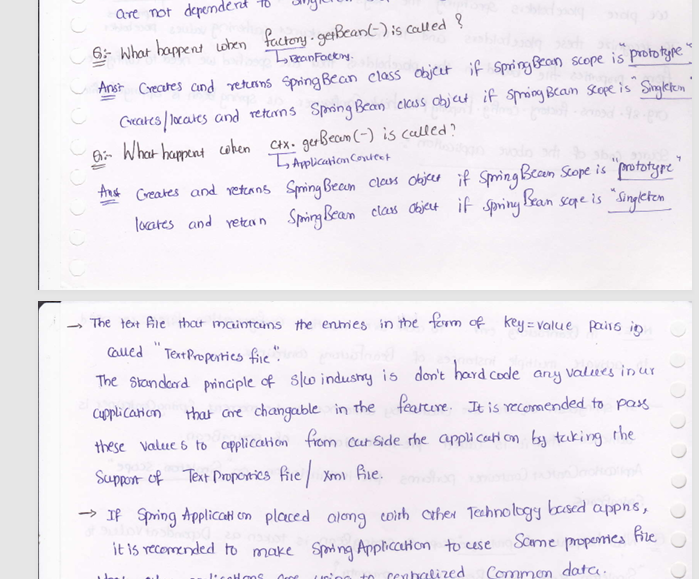 are not dependent to
Q:- What happent when factory.gerBean(-) is called?
↳BeanFactory.
Ans: Creates and returns SpringBean class object if SpringBean scope is "prototype"
Creates/locates and returns SpringBean class object if SpringBean scope is "Singleton"
Q:- What happent when ctx.gerBean(-) is called?
↳ApplicationContext
Ans Creates and returns SpringBean class object if SpringBean scope is "prototype"
locates and return SpringBean class object if spring Bean scope is "Singleton
→ The text file that maintains the entries in the form of key=value pairs is
called "TextProperties file".
The standard principle of s/w industry is don't hard code any values in ur
application that are changable in the feature. It is recomended to pass
these values to application from outside the application by taking the
Support of Text Properties file / xml file.
→ If Spring Application placed along with other Technology based appns,
it is recomended to make Spring Application to use Same properties file
using to centralized Common data.